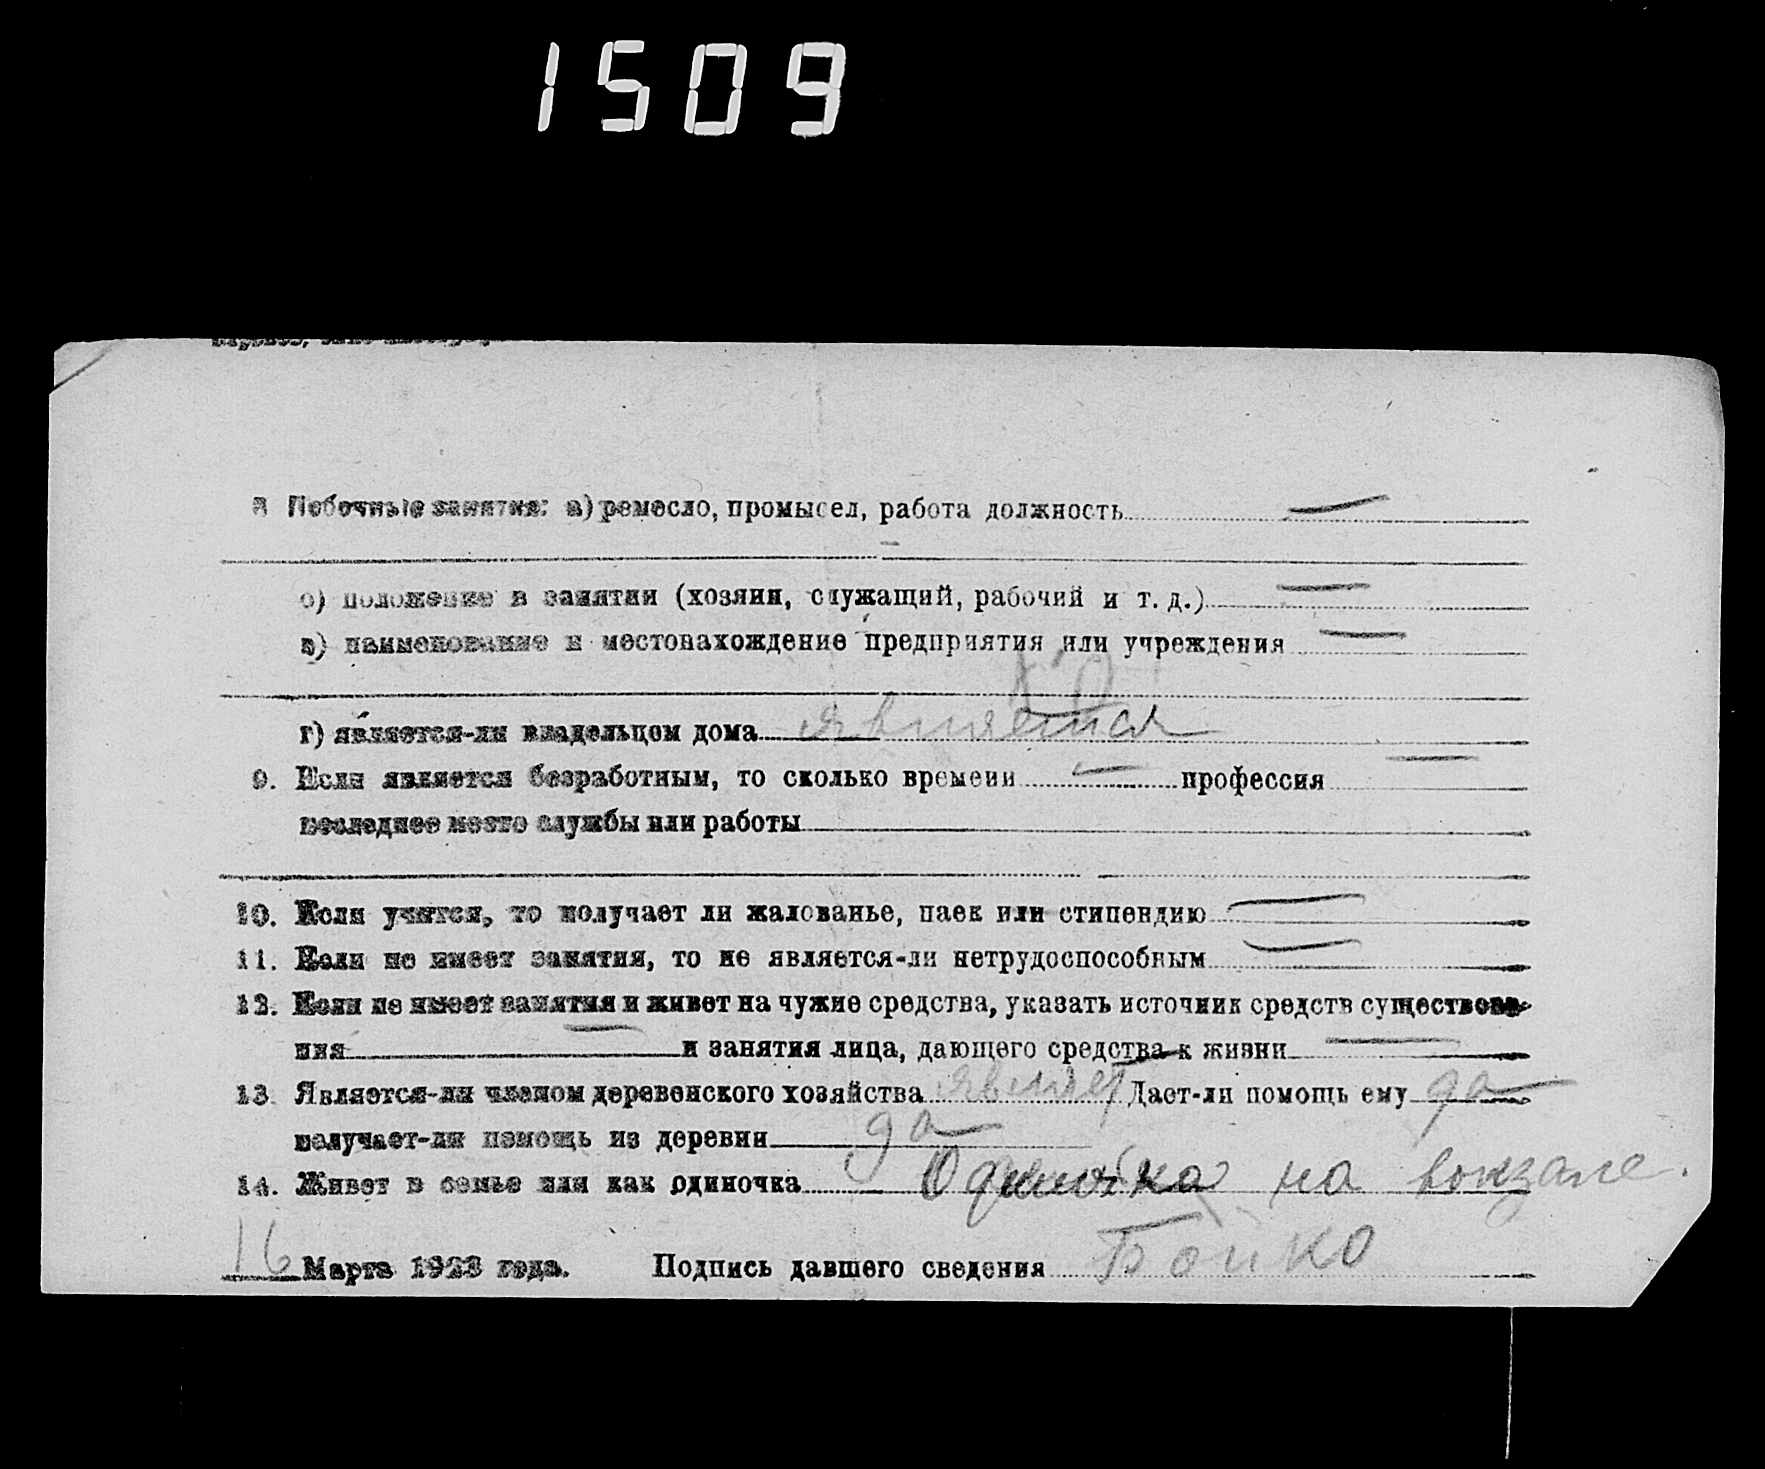 1509
8 Побочные занятия: а) ремесло, промысел, работа должность —
б) положение в занятии (хозяин, служащий, рабочий и т. д.) —
в) наименование и местонахождение предприятия или учреждения —
г) является-ли владельцем дома является
9. Если является безработным, то сколько времени — профессия —
последнее место службы или работы
10. Если учится, то получает ли жалованье, паек или стипендию —
11. Если не имеет занятия, то не является-ли нетрудоспособным —
12. Если не имеет занятия и живет на чужие средства, указать источник средств существова-
ния — и занятия лица, дающего средства к жизни —
13 Является-ли членом деревенского хозяйства являет Дает-ли помощь ему да
получает-ли помощь из деревни да
14. Живет в семье или как одиночка Одиночка на вокзале.
16 Марта 1923 года. Подпись давшего сведения Бойко